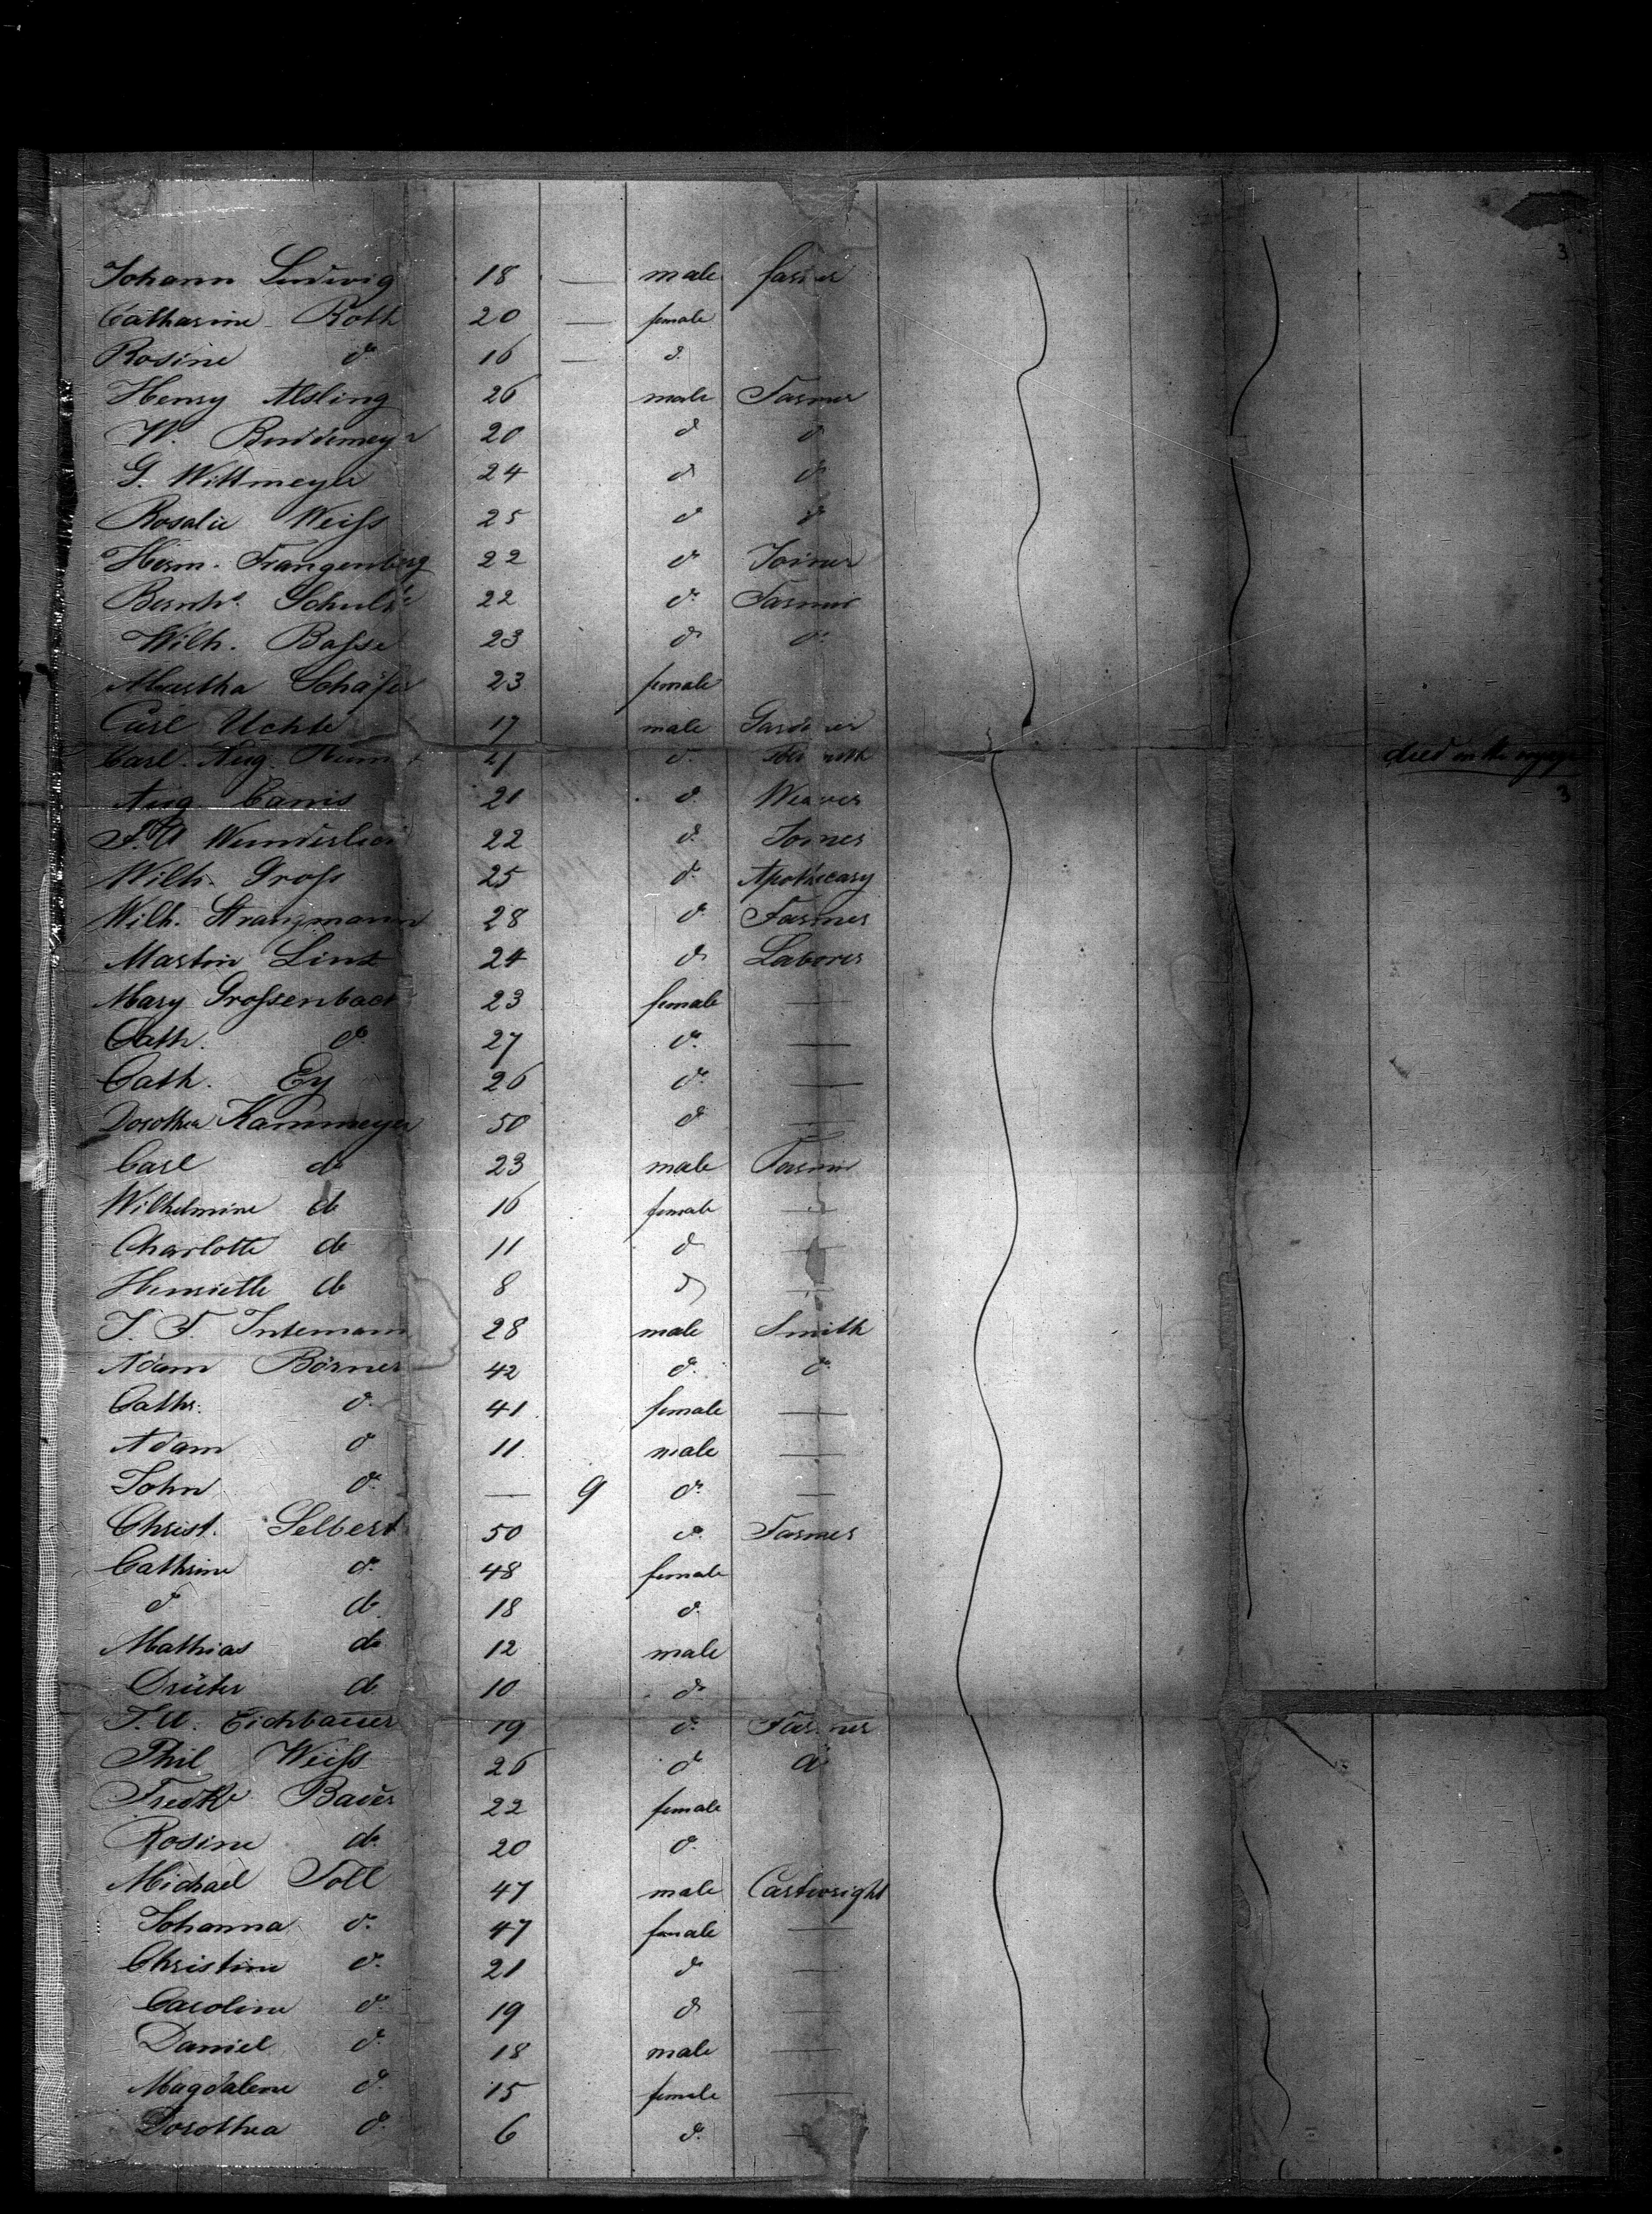 3
Johann Ludwig 18 — male farmer
Catharine Roth 20 — female
Rosine do 16 — do
Henry Alsling 26 male Farmer
W. Buddemeyer 20 do do
G. Wittmeyer 24 do do
Rosalie Weifs 25 do do
Herm. Frangenberg 22 do Joiner
Bernhd. Schulze 22 do Farmer
Wilh. Bafse 23 do do
Martha Schäfer 23 female
Carl Uchte 17 male Gardner
Carl. Aug. 21 do died on the voyage
Aug. Canis 21 do Weaver 3
22 do Joiner
Wilh. Grofs 25 do Apothecary
Wilh. Strangmann 28 do Farmer
Martin Linz 24 do Laborer
Mary Grofsenbach 23 female —
Cath. do 27 do —
Cath. Ey 26 do —
Dorothea Kammeyer 50 do —
Carl do 23 male Farmer
Wilhelmine do 16 female —
Charlotte do 11 do —
Henriette do 8 do —
J. F. Intemann 28 male Smith
Adam Börner 42 do do
Cathr. do 41 female —
Adam do 11 male —
John do — 9 do —
Christ. Selbert 50 do Farmer
Cathrine do 48 female
do do 18 do
Mathias do 12 male
do 10 do
Eichbauer 19 do Farmer
Phil Weifs 26 do do
Fredke Bauer 22 female
Rosine do 20 do
Michael Toll 47 male Cartwright
Johanna do 47 female —
Christine do 21 do —
Caroline do 19 do —
Daniel do 18 male —
Magdalene do 15 female —
Dorothea do 6 do —